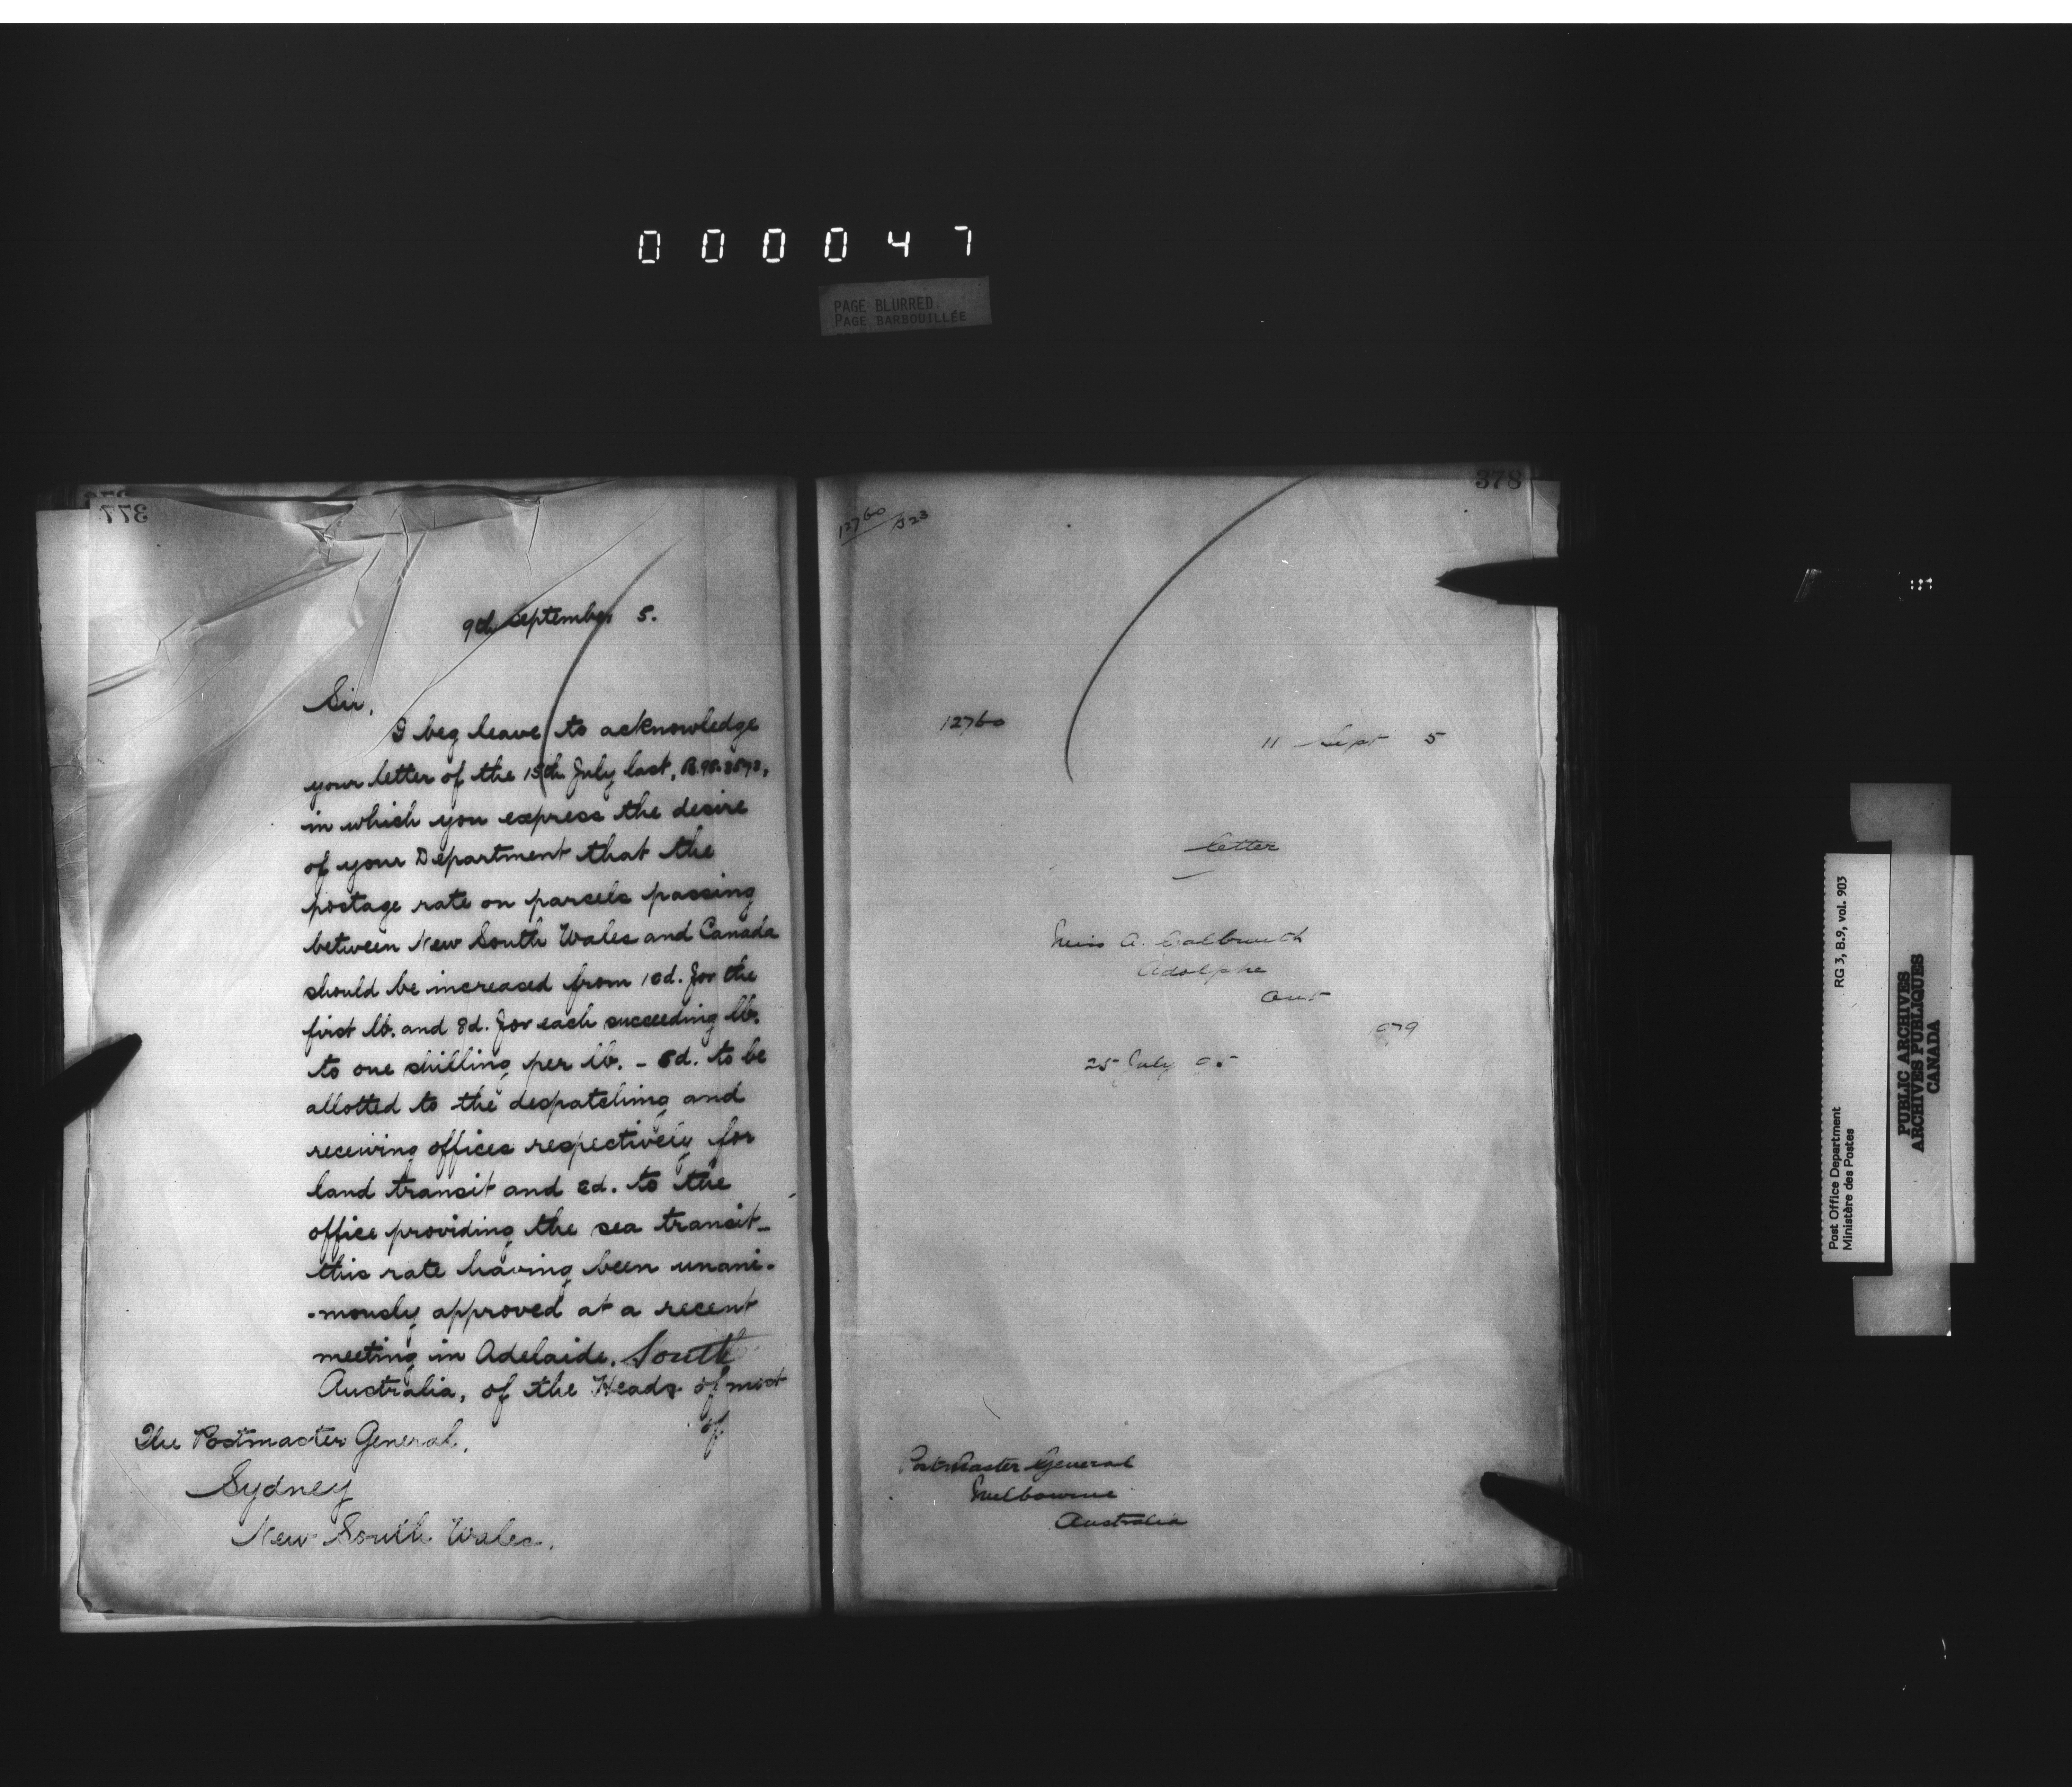 000047
PAGE BLURRED
PAGE BARBOUILLÉE
377
9th September 5.
Sir,
I beg leave to acknowledge
your letter of the 15th July last,
in which you express the desire
of your Department that the
postage rate on parcels passing
between New South Wales and Canada
should be increased from 10d. for the
first lb. and 8d. for each succeeding lb.
to one shilling per lb. - 5d. to be
allotted to the despatching and
receiving offices respectively for
land transit and 2d. to the
office providing the sea transit-
this rate having been unani-
-mously approved at a recent
meeting in Adelaide, South
Australia, of the Heads of most
of
The Postmaster General,
Sydney
New South Wales.
378
12760
12760
11 Sept 5
letter
Miss A. Galbraith
Adolphe
Ont
25 July 05
Postmaster General
Melbourne
Australia
Post Office Department
Ministère des Postes
RG 3, B.9, vol. 903
PUBLIC ARCHIVES
ARCHIVES PUBLIQUES
CANADA